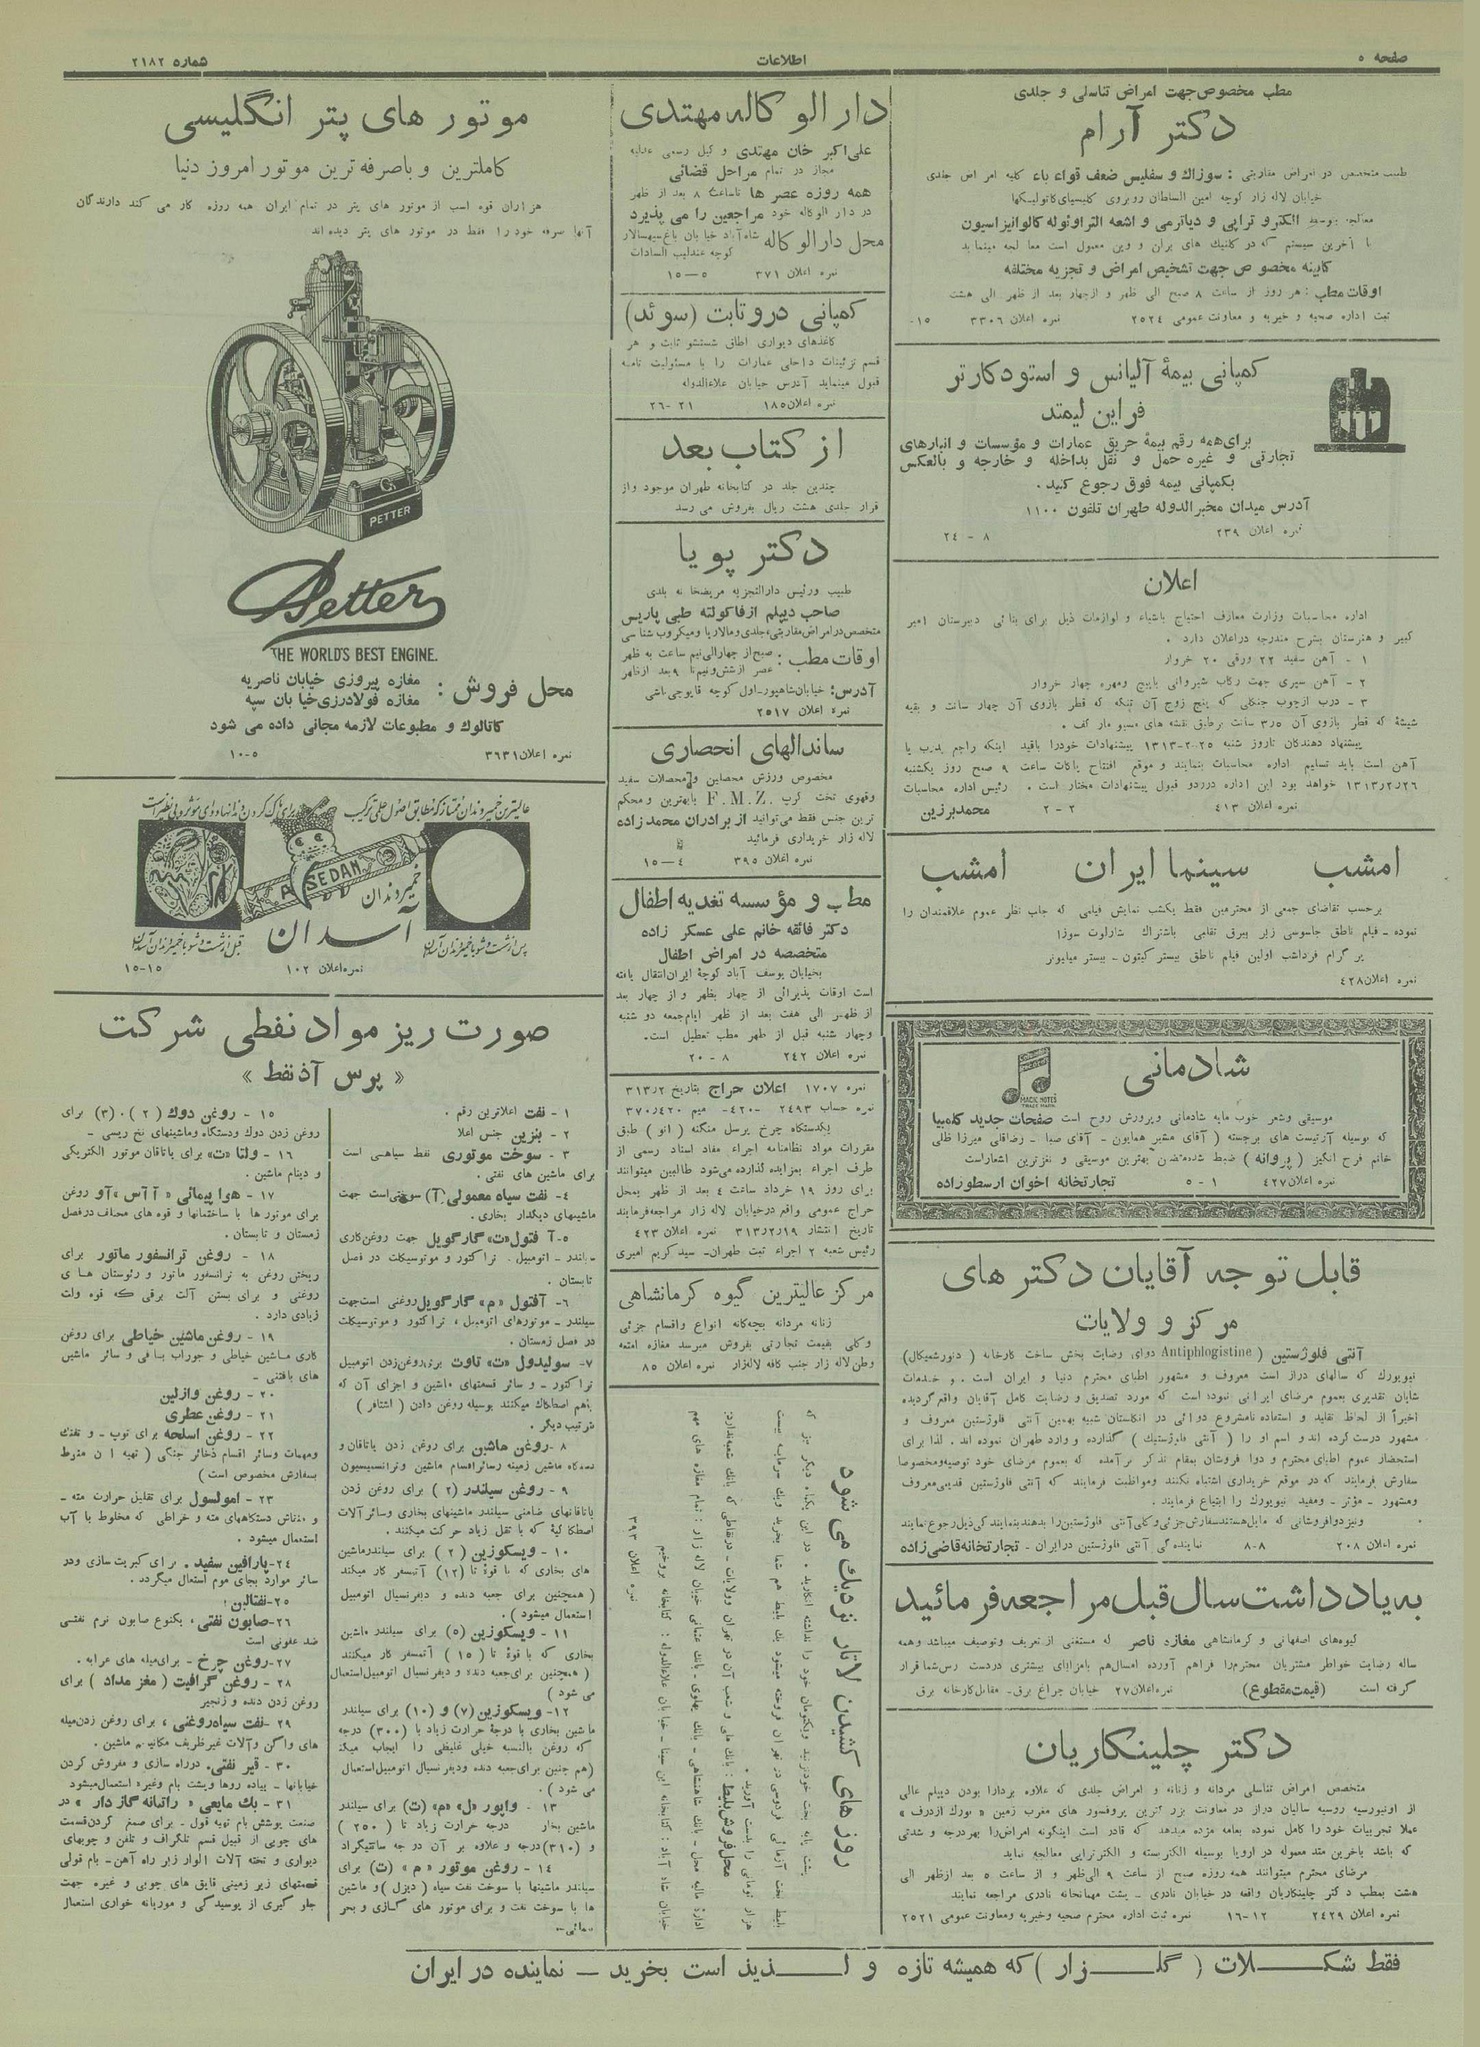 صفحه ٥
اطلاعات
شماره ٢١٨٢
مطب مخصوص جهت امراض تناسلی و جلدی
دکتر آرام
طبیب متخصص در امراض مقاربتی : سوزاك و سفلیس ضعف قواء باء کلیه امراض جلدی
خیابان لاله زار کوچه امین السلطان روبروی کلیسیای کاتولیکها
معالجه بتوسط الکترو تراپی و دیاترمی و اشعه التراوئوله کالوانیزاسیون
با آخرین سیستم که در کلنیك های برلن و وین معمول است معالجه مینماید
کابینه مخصوص جهت تشخیص امراض و تجزیه مختلفه
اوقات مطب : هر روز از ساعت ٨ صبح الی ظهر و از چهار بعد از ظهر الی هشت
ثبت اداره صحیه و خیریه و معاونت عمومی ٢٥٢٤ نمره اعلان ٣٣٠٦ ١٥-
کمپانی بیمۀ آلیانس و استودکارتر
فراین لیمتد
برای همه رقم بیمۀ حریق عمارات و مؤسسات و انبارهای
تجارتی و غیره حمل و نقل بداخله و خارجه و بالعکس
بکمپانی بیمه فوق رجوع کنید .
آدرس میدان مخبرالدوله طهران تلفون ١١٠٠
نمره اعلان ٢٣٩ ٨ - ٢٤
اعلان
اداره محاسبات وزارت معارف احتیاج باشیاء و لوازمات ذیل برای بنائی دبیرستان امیر
کبیر و هنرستان بشرح مندرجه در اعلان دارد .
١ - آهن سفید ٢٢ ورقی ٢٠ خروار
٢ - آهن سپری جهت رکاب شیروانی باپیچ ومهره چهار خروار
٣ - درب از چوب جنگلی که پنج زوج آن تنکه که قطر بازوی آن چهار سانت و بقیه
شیشۀ که قطر بازوی آن ٣/٥ سانت برطبق نقشه های مسیو مارکف .
پیشنهاد دهندگان تاروز شنبه ٢٥-٢-١٣١٣ پیشنهادات خودرا باقید اینکه راجع بدرب یا
آهن است باید تسلیم اداره محاسبات بنمایند و موقع افتتاح پاکات ساعت ٩ صبح روز یکشنبه
١٣١٣/٢/٢٦ خواهد بود این اداره دررد و قبول پیشنهادات مختار است . رئیس اداره محاسبات
نمره اعلان ٤١٣ ٢ - ٢ محمد برزین
امشب سینما ایران امشب
برحسب تقاضای جمعی از محترمین فقط یکشب نمایش فیلمی که جلب نظر عموم علاقمندان را
نموده - فیلم ناطق جاسوسی زیر بیرق نظامی باشتراك شارلوت سوزا
پرگرام فرداشب اولین فیلم ناطق بیستر کیتون - بیستر میلیونر
نمره اعلان ٤٢٨
شادمانی
MAGIC NOTES
TRADE MARK
موسیقی وشعر خوب مایه شادمانی وپرورش روح است صفحات جدید کلمبیا
که بوسیله آرتیست های برجسته ( آقای مشیر همایون - آقای صبا - رضاقلی میرزا ظلی
خانم فرح انگیز ( پروانه ) ضبط شده متضمن بهترین موسیقی و نغزترین اشعار است
نمره اعلان ٤٢٧ ١ - ٥ تجارتخانه اخوان ارسطوزاده
قابل توجه آقایان دکتر های
مرکز و ولایات
آنتی فلوژستین ( Antiphlogistine دوای رضایت بخش ساخت کارخانه ( دنورشمیکال)
نیویورك که سالهای دراز است معروف و مشهور اطبای محترم دنیا و ایران است . و خدمات
شایان تقدیری بعموم مرضای ایرانی نموده است که مورد تصدیق و رضایت کامل آقایان واقع گردیده
اخیراً از لحاظ تقلید و استفاده نامشروع دوائی در انگلستان شبیه بهمین آنتی فلوژستین معروف و
مشهور درست کرده اند و اسم او را ( آنتی فلوژستیك ) گذارده و وارد طهران نموده اند . لذا برای
استحضار عموم اطبای محترم و دوا فروشان بمقام تذکر برآمده که بعموم مرضای خود توصیه ومخصوصا
سفارش فرمایند که در موقع خریداری اشتباه نکنند ومواظبت فرمایند که آنتی فلوژستین قدیمی معروف
ومشهور - مؤثر - ومفید نیویورك را ابتیاع فرمایند .
ونیز دوافروشانی که مایل هستند سفارش جزئی وکلی آنتی فلوژستین را بدهند بنمایندگی ذیل رجوع نمایند
نمره اعلان ٢٠٨ ٨-٨ نمایندگی آنتی فلوژستین در ایران - تجارتخانه قاضی زاده
به یادداشت سال قبل مراجعه فرمائید
گیوه های اصفهانی و کرمانشاهی مغازه ناصر که مستغنی از تعریف وتوصیف میباشد وهمه
ساله رضایت خواطر مشتریان محترم را فراهم آورده امسال هم بامزایای بیشتری دردست رس شما قرار
گرفته است (قیمت مقطوع) نمره اعلان ٢٧ خیابان چراغ برق - مقابل کارخانه برق
دکتر چلینکاریان
متخصص امراض تناسلی مردانه و زنانه و امراض جلدی که علاوه بردارا بودن دیپلم عالی
از اونیورسیه روسیه سالیان دراز در معاونت بزرگترین پروفسور های مغرب زمین
عملا تجربیات خود را کامل نموده بعامه مژده میدهد که قادر است اینگونه امراض را بهر درجه و شدتی
که باشد باخرین متد معموله در اروپا بوسیله الکتریسته و الکتراپی معالجه نماید
مرضای محترم میتوانند همه روزه صبح از ساعت ٩ الی ظهر و از ساعت ٥ بعد از ظهر الی
هشت بمطب دکتر چلینکاریان واقعه در خیابان نادری - پشت مهمانخانه نادری مراجعه نمایند
نمره اعلان ٢٤٢٩ ١٢-١٦ نمره ثبت اداره محترم صحیه وخیریه ومعاونت عمومی ٢٥٢١
دارالوکاله مهتدی
علی اکبر خان مهتدی و کیل رسمی عدلیه
مجاز در تمام مراحل قضائی
همه روزه عصر ها تا ساعت ٨ بعد از ظهر
در دارالوکاله خود مراجعین را می پذیرد
محل دارالوکاله شاه آباد خیابان باغ سپهسالار
کوچه عندلیب السادات
نمره اعلان ٣٧١ ٥ - ١٥
کمپانی دروتابت (سوئد)
کاغذهای دیواری اطاق شستشو ثابت و هر
قسم تزئینات داخلی عمارات را با مسئولیت تامه
قبول مینماید آدرس خیابان علاءالدوله
نمره اعلان ١٨٥ ٢١ - ٢٦
از کتاب بعد
چندین جلد در کتابخانه طهران موجود واز
قرار جلدی هشت ریال بفروش می رسد
دکتر پویا
طبیب ورئیس دارالتجزیه مریضخانه بلدی
صاحب دیپلم از فاکولته طبی پاریس
متخصص در امراض مقاربتی، جلدی و مالاریا ومیکروب شناسی
اوقات مطب : صبح از چهارالی نیم ساعت به ظهر
عصر از شش ونیم تا ٩ بعد از ظهر
آدرس: خیابان شاهپور - اول کوچه قاپوچی باشی
نمره اعلان ٢٥١٧
ساندالهای انحصاری
مخصوص ورزش محصلین و محصلات سفید
وقهوی تخت کرپ F.M.Z. بابهترین و محکم
ترین جنس فقط میتوانید از برادران محمدزاده
لاله زار خریداری فرمائید
نمره اعلان ٣٩٥ ٤ - ١٥
مطب و مؤسسه تغذیه اطفال
دکتر فائقه خانم علی عسکر زاده
متخصصه در امراض اطفال
بخیابان یوسف آباد کوچۀ ایران انتقال یافته
است اوقات پذیرائی از چهار بظهر و از چهار بعد
از ظهر الی هفت بعد از ظهر ایام جمعه دو شنبه
وچهار شنبه قبل از ظهر مطب تعطیل است.
نمره اعلان ٢٤٢ ٨ - ٢٠
نمره ١٧٠٧ اعلان حراج بتاریخ ٣١٣/٢
نمره حساب ٢٤٩٣ -٤٢٠- میم ٣٧٠/٤٢٠
یکدستگاه چرخ پرسل منگنه ( اتو ) طبق
مقررات مواد نظامنامه اجراء مفاد اسناد رسمی از
طرف اجراء بمزایده گذارده می شود طالبین میتوانند
برای روز ١٩ خرداد ساعت ٤ بعد از ظهر بمحل
حراج عمومی واقع درخیابان لاله زار مراجعه فرمایند
تاریخ انتشار ٣١٣/٢/١٩ نمره اعلان ٤٢٣
رئیس شعبه ٢ اجراء ثبت طهران - سید کریم امیری
مرکز عالیترین گیوه کرمانشاهی
زنانه مردانه بچه گانه انواع واقسام جزئی
وکلی بقیمت تجارتی بفروش میرسد مغازه امتعه
وطن لاله زار جنب کافه لاله زار نمره اعلان ٨٥
روزهای کشیدن لاتار نزدیك می شود
در این یکماه دیگر نیز که
محل فروش بلیط : بانك ملی و شعب آن در تهران و ولایات - درنقاطی که بانك شعبه ندارد:
نمره اعلان ٣٩٣
موتور های پتر انگلیسی
کاملترین و باصرفه ترین موتور امروز دنیا
هزاران قوه اسب از موتور های پتر در تمام ایران همه روزه کار می کند دارندگان
آنها صرفه خود را فقط در موتور های پتر دیده اند
PETTER
Petter
THE WORLD'S BEST ENGINE.
محل فروش : مغازه پیروزی خیابان ناصریه
مغازه فولادرزی خیابان سپه
کاتالوك و مطبوعات لازمه مجانی داده می شود
نمره اعلان ٣٦٣١ ٥-١٠
SEDAN
خمیردندان
آسدان
قبل از شست و شو با خمیر دندان آسدان
پس از شست و شو با خمیر دندان آسدان
نمره اعلان ١٠٢ ١٥-١٥
صورت ریز مواد نفطی شرکت
« پرس آذنفط »
١ - نفت اعلاترین رقم .
٢ - بنزین جنس اعلا
٣ - سوخت موتوری نفط سیاهی است
برای ماشین های نفتی .
٤ - نفت سیاه معمولی (آ) سوختی است جهت
ماشینهای دیگدار بخاری .
٥ - آفتول «ت» گارگویل جهت روغن کاری
سیلندر - اتومبیل . تراکتور و موتوسیکلت در فصل
تابستان .
٦ - آفتول «م» گارگویل روغنی است جهت
سیلندر - موتورهای اتومبیل ، تراکتور و موتوسیکلت
در فصل زمستان .
٧ - سولیدول «ت» تاوت برای روغن زدن اتومبیل
تراکتور - و سائر قسمتهای ماشین و اجزای آن که
باهم اصطکاك میکنند بوسیله روغن دادن ( اشتافر )
ترتیب دیگر .
٨ - روغن ماشین برای روغن زدن یاتاقان و
دستگاه ماشین زمینه وسائر اقسام ماشین وترانسمیسیون
٩ - روغن سیلندر (٢) برای روغن زدن
یاتاقانهای ضامنی سیلندر ماشینهای بخاری وسائر آلات
اصطکاکیۀ که با ثقل زیاد حرکت میکنند .
١٠ - ویسکوزین (٢) برای سیلندر ماشین
های بخاری که با قوۀ تا (١٢) آتمسفر کار میکند
( همچنین برای جعبه دنده و دیفرنسیال اتومبیل
استعمال میشود ) .
١١ - ویسکوزین (٥) برای سیلندر ماشین
بخاری که با قوۀ تا ( ١٥ ) آتمسفر کار میکنند
( همچنین برای جعبه دنده ودیفرنسیال اتومبیل استعمال
می شود )
١٢ - ویسکوزین (٧) و (١٠) برای سیلندر
ماشین بخاری با درجۀ حرارت زیاد تا (٣٠٠) درجه
که روغن بالنسبه خیلی غلیظی را ایجاب میکند
(هم چنین برای جعبه دنده ودیفرنسیال اتومبیل استعمال
می شود ) .
١٣ - واپور «ل» «م» (ت) برای سیلندر
ماشین بخار درجه حرارت زیاد تا ( ٢٥٠ )
و (٣١٠) درجه و علاوه بر آن درجه سانتیگراد
١٤ - روغن موتور «م» (ت) برای
سیلندر ماشینها با سوخت نفت سیاه (دیزل) و ماشین
ها با سوخت نفت و برای موتور های گازی و بحر
پیمائی .
١٥ - روغن دوك ( ٢ ) ، (٣) برای
روغن زدن دوك ودستگاه وماشینهای نخ ریسی -
١٦ - ولتا «ت» برای یاتاقان موتور الکتریکی
و دینام ماشین .
١٧ - هوا پیمائی «آآس» «آو» روغن
برای موتور ها با ساختمانها و قوه های مختلف در فصل
زمستان و تابستان .
١٨ - روغن ترانسفور ماتور برای
ریختن روغن به ترانسفور ماتور و رئوستان های
روغنی و برای بستن آلت برقی که قوه ولت
زیادی دارد .
١٩ - روغن ماشین خیاطی برای روغن
کاری ماشین خیاطی و جوراب بافی و سائر ماشین
های بافتنی -
٢٠ - روغن وازلین
٢١ - روغن عطری
٢٢ - روغن اسلحه برای توپ - و تفنك
ومهمات وسائر اقسام ذخائر جنگی ( تهیه آن منوط
بسفارش مخصوص است )
٢٣ - امولسول برای تقلیل حرارت مته -
و منقاش دستگاههای مته و خراطی که مخلوط با آب
استعمال میشود .
٢٤ - پارافین سفید . برای کبریت سازی ودر
سائر موارد بجای موم استعمال میگردد .
٢٥ - نفتالین !
٢٦ - صابون نفتی ، یکنوع صابون نرم نفتی
ضد عفونی است
٢٧ - روغن چرخ - برای میله های عرابه .
٢٨ - روغن گرافیت ( مغز مداد ) برای
روغن زدن دنده و زنجیر
٢٩ - نفت سیاه روغنی ، برای روغن زدن میله
های واگن وآلات غیر ظریف مکانیسم ماشین .
٣٠ - قیر نفتی. در راه سازی و مفروش کردن
خیابانها - پیاده روها وپشت بام وغیره استعمال میشود
٣١ - بك مایعی « راتیانه گاز دار » در
صنعت پوشش بام تهیه قول - برای صمغ کردن قسمت
های چوبی از قبیل قسم تلگراف و تلفن و چوبهای
دیواری و تخته آلات الوار زیر راه آهن - بام قولی
قسمتهای زیر زمینی قایق های چوبی و غیره جهت
جلو گیری از پوسیدگی و موریانه خواری استعمال
فقط شکلات ( گلزار ) که همیشه تازه و لذیذ است بخرید - نماینده در ایران